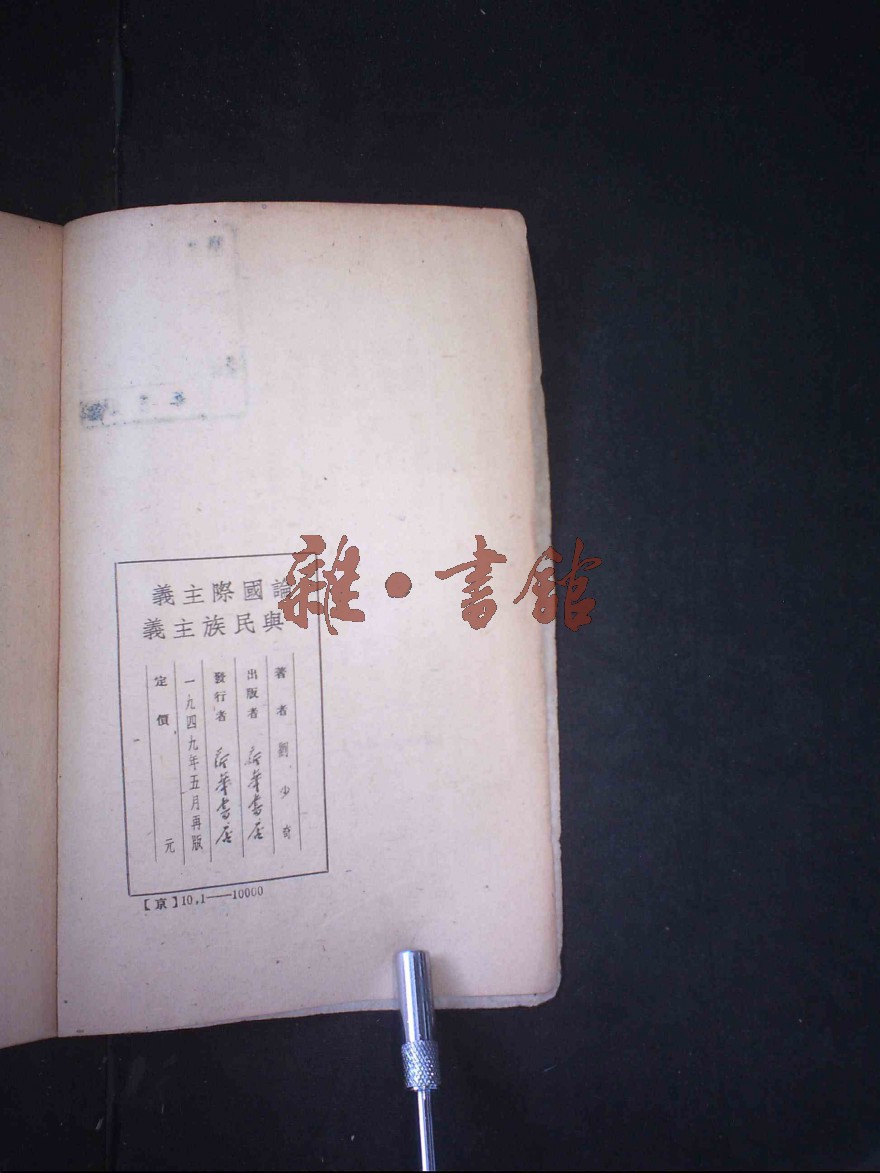 論國際主義
與民族主義
著者 劉少奇
出版者 新華書店
發行者 新華書店
一九四九年五月再版
定價 元
【京】10,1——10000
雜·書館